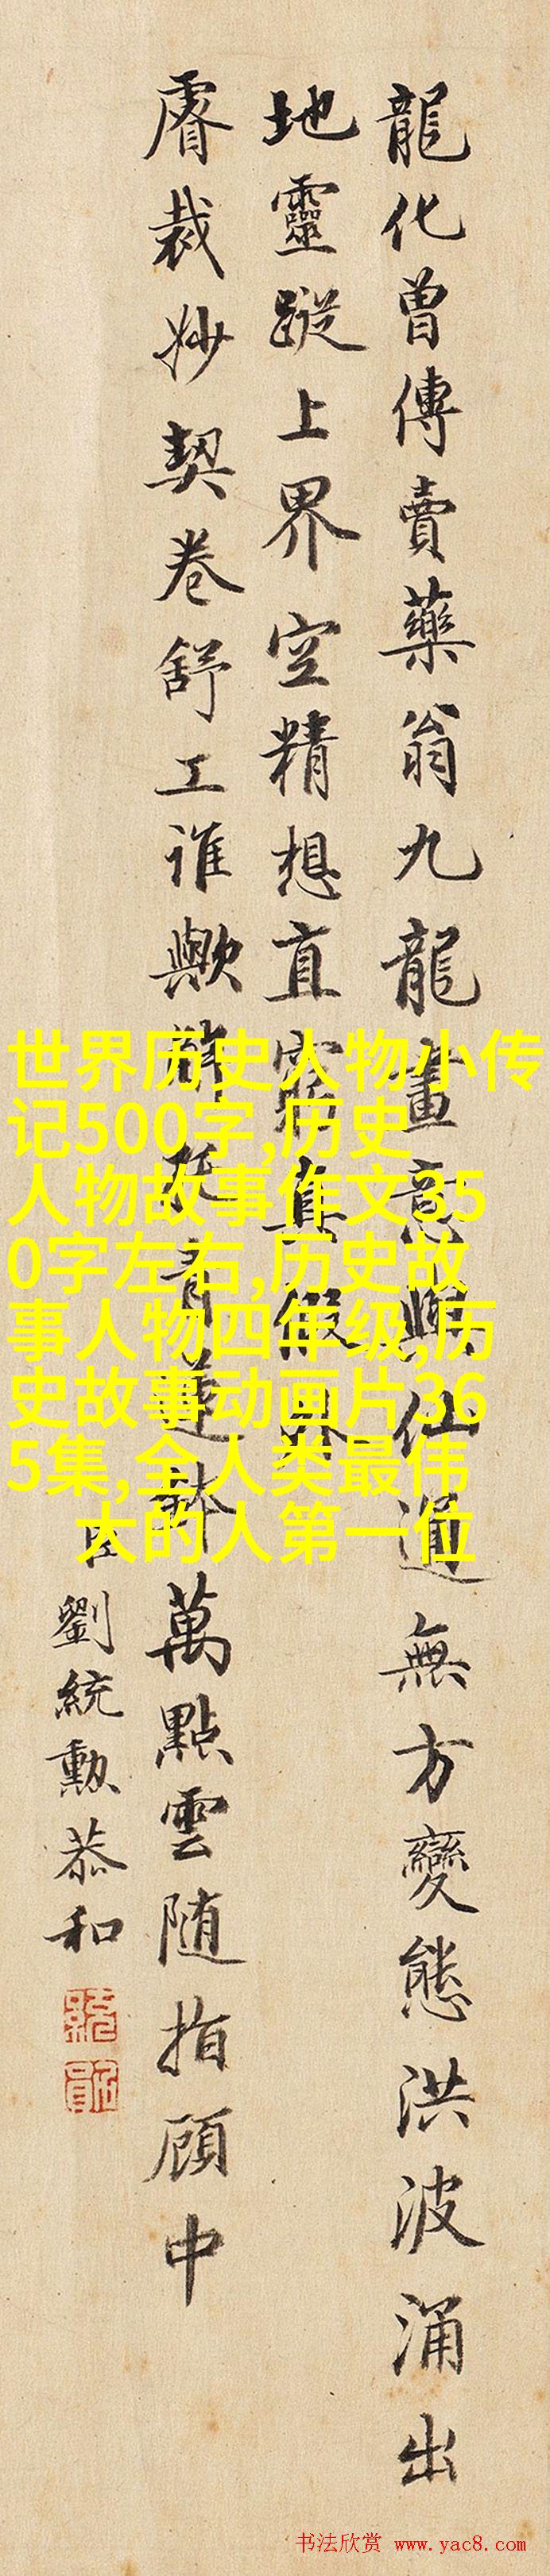 龍化曾傳賣藥翁九龍畫意與仙通無方變態洪波涌出
地靈蹤上界空精想直窮真假
睿裁妙契卷舒工誰歟青蓮鉢萬點雲随指顧中
臣劉統勳恭和
世界历史人物小传
记500字,历史
人物故事作文35
0字左右,历史故
事人物四年级,历
史故事动画片36
5集,全人类最伟
大的人第一位
书法欣赏 www.yac8.com